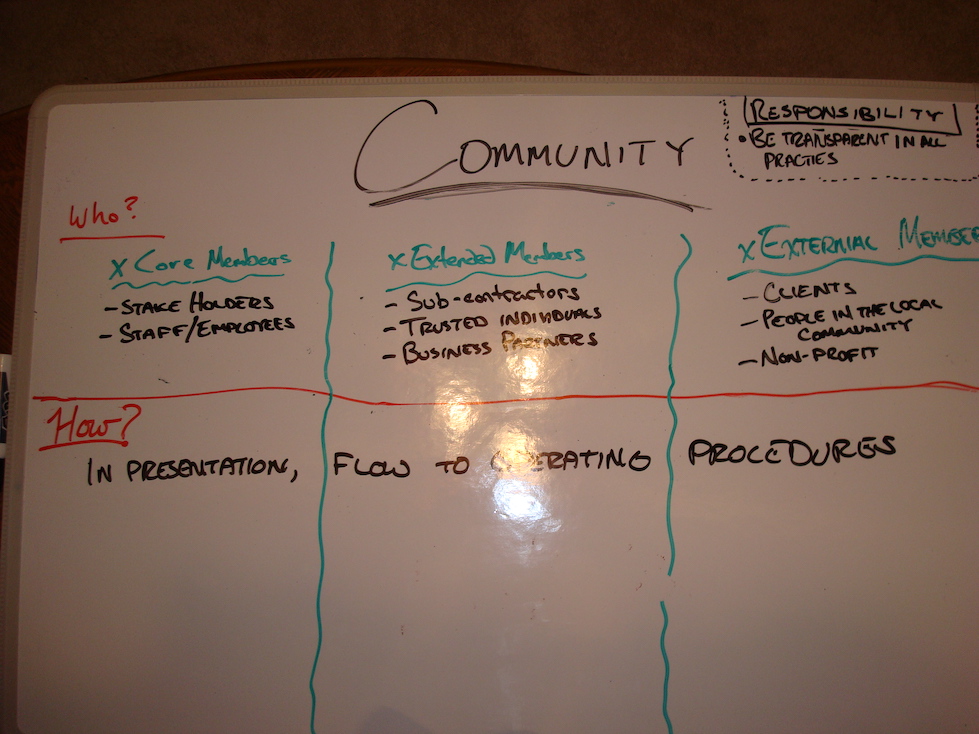 COMMUNITY
RESPONSIBILITY
• BE TRANSPARENT IN ALL
PRACTIES
Who?
x Core Members
- STAKE HOLDERS
- STAFF/EMPLOYEES
x Extended Members
- Sub-contractors
- TRUSTED INDIVIDUALS
- BUSINESS PARTNERS
x EXTERNIAL MEMBER
- CLIENTS
- PEOPLE IN THE LOCAL
COMMUNITY
- NON-PROFIT
How?
IN PRESENTATION, FLOW TO OPERATING PROCEDURES